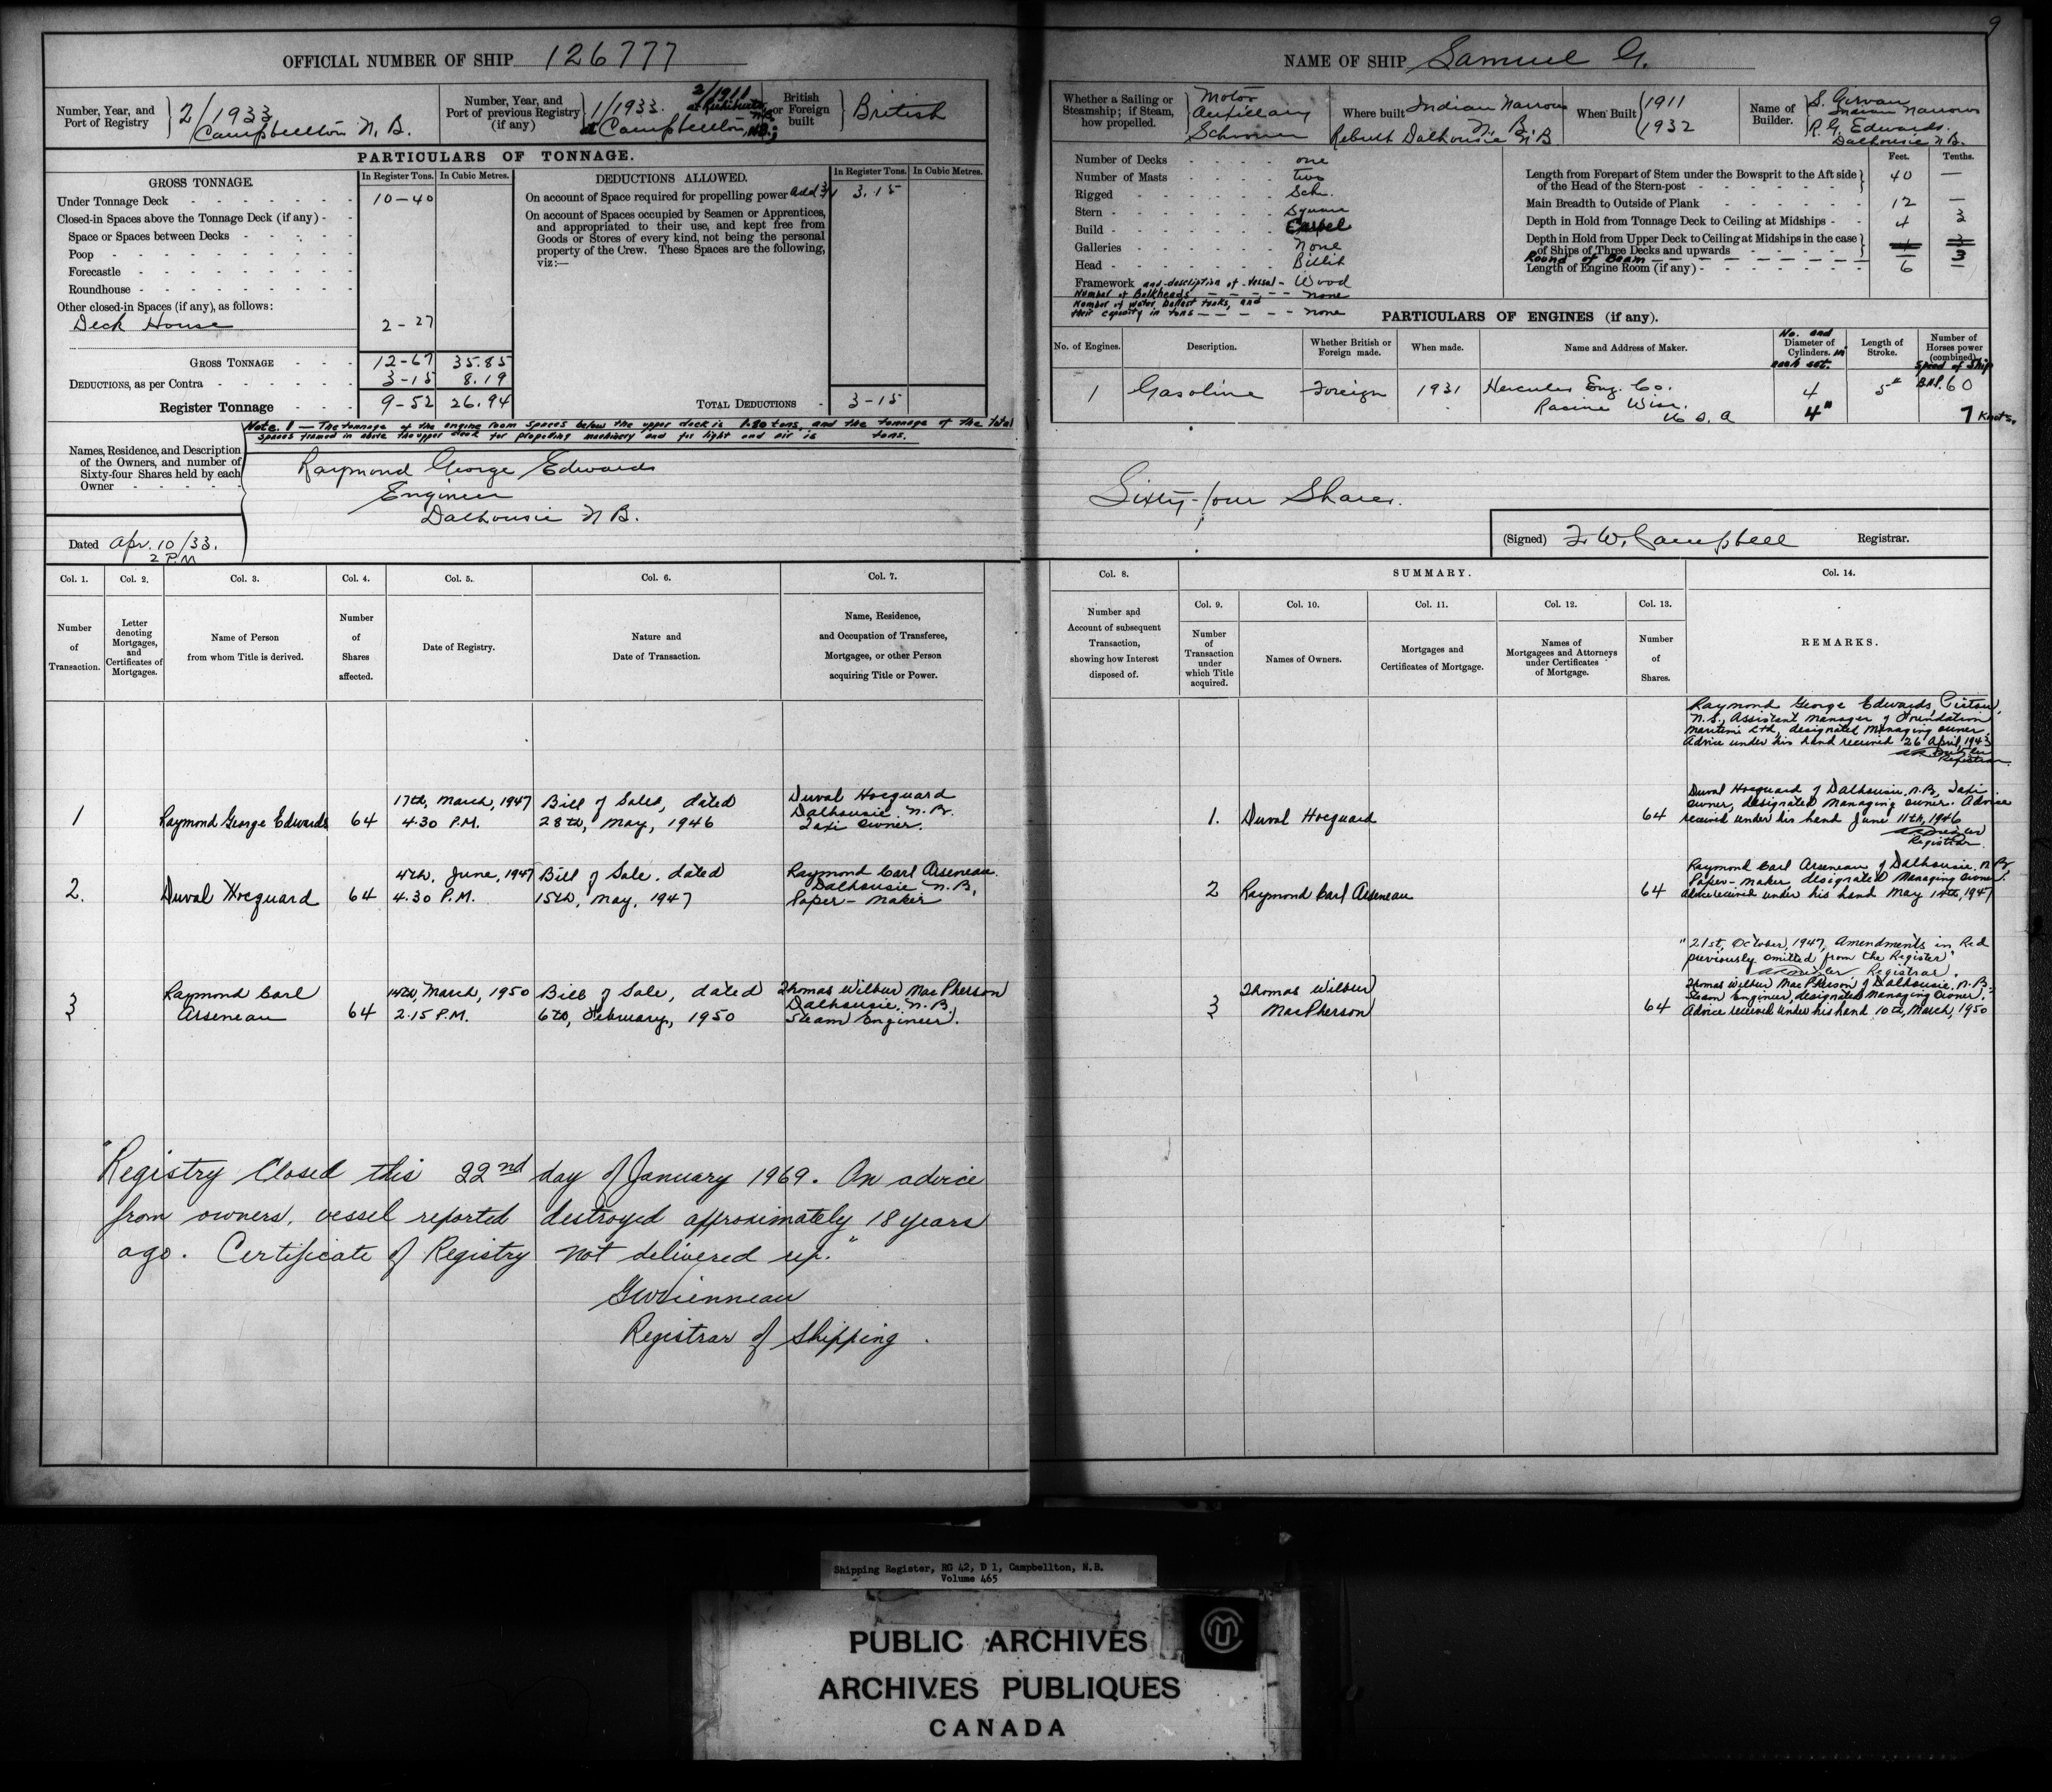 9
OFFICIAL NUMBER OF SHIP 126777
Number, Year, and Port of Registry 2/1933 Campbellton N. B.
Number, Year, and Port of previous Registry (if any) 1/1933. at Campbellton, N.B.; 2/1911 at Richibucto N.B.
British or Foreign built British
PARTICULARS OF TONNAGE.
GROSS TONNAGE.
In Register Tons. In Cubic Metres.
Under Tonnage Deck 10-40
Closed-in Spaces above the Tonnage Deck (if any)
Space or Spaces between Decks
Poop
Forecastle
Roundhouse
Other closed-in Spaces (if any), as follows:
Deck House 2-27
GROSS TONNAGE 12-67 35.85
DEDUCTIONS, as per Contra 3-15 8.19
Register Tonnage 9-52 26.94
DEDUCTIONS ALLOWED.
In Register Tons. In Cubic Metres.
On account of Space required for propelling power 3.15
On account of Spaces occupied by Seamen or Apprentices, and appropriated to their use, and kept free from Goods or Stores of every kind, not being the personal property of the Crew. These Spaces are the following, viz:—
TOTAL DEDUCTIONS 3-15
Note. 1 — The tonnage of the engine room spaces below the upper deck is 1.80 tons, and the tonnage of the total
spaces framed in above the upper deck for propelling machinery and for light and air is tons.
Names, Residence, and Description of the Owners, and number of Sixty-four Shares held by each Owner
Raymond George Edwards
Engineer
Dalhousie N B.
Dated Apr. 10/33.
2 P.M
NAME OF SHIP Samuel G.
Whether a Sailing or Steamship; if Steam, how propelled. Motor Auxiliary Schooner
Where built Indian Narrows N. B. Rebuilt Dalhousie N B
When Built 1911 1932
Name of Builder. S. Girvan Indian Narrows R. G. Edwards. Dalhousie N.B.
Number of Decks one
Number of Masts two
Rigged Sch.
Stern Square
Build Carvel
Galleries None
Head Billet
Framework and description of vessel Wood
Number of Bulkheads none
Number of water ballast tanks, and their capacity in tons none
Feet. Tenths.
Length from Forepart of Stem under the Bowsprit to the Aft side of the Head of the Stern-post 40 —
Main Breadth to Outside of Plank 12 —
Depth in Hold from Tonnage Deck to Ceiling at Midships 4 3
Depth in Hold from Upper Deck to Ceiling at Midships in the case of Ships of Three Decks and upwards
Round of Beam 3
Length of Engine Room (if any) 6 —
PARTICULARS OF ENGINES (if any).
No. of Engines. Description. Whether British or Foreign made. When made. Name and Address of Maker. No. and Diameter of Cylinders. in each set. Length of Stroke. Number of Horses power (combined). Speed of Ship
1 Gasoline Foreign 1931 Hercules Eng. Co. Racine Wisc. U S. A 4 4" 5" BHP. 60 7 Knots.
Sixty-four Shares.
(Signed) F. W. Campbell Registrar.
Col. 1. Col. 2. Col. 3. Col. 4. Col. 5. Col. 6. Col. 7.
Number of Transaction.
Letter denoting Mortgages, and Certificates of Mortgages.
Name of Person from whom Title is derived.
Number of Shares affected.
Date of Registry.
Nature and Date of Transaction.
Name, Residence, and Occupation of Transferee, Mortgagee, or other Person acquiring Title or Power.
1 Raymond George Edwards 64 17th, March, 1947 4.30 P.M. Bill of Sale, dated 28th, May, 1946 Duval Hocquard Dalhousie. N.B. Taxi owner.
2. Duval Hocquard 64 4th, June, 1947 4.30 P.M. Bill of Sale. dated 15th, May, 1947 Raymond Carl Arseneau. Dalhousie N.B, Paper-maker
3 Raymond Carl Arseneau 64 14th, March, 1950 2.15 P.M. Bill of Sale, dated 6th, February, 1950 Thomas Wilbur MacPherson Dalhousie. N.B. Steam Engineer.
"Registry Closed this 22nd day of January 1969. On advice
from owners, vessel reported destroyed approximately 18 years
ago. Certificate of Registry not delivered up."
Registrar of Shipping.
Col. 8. SUMMARY. Col. 14.
Col. 9. Col. 10. Col. 11. Col. 12. Col. 13.
Number and Account of subsequent Transaction, showing how Interest disposed of.
Number of Transaction under which Title acquired.
Names of Owners.
Mortgages and Certificates of Mortgage.
Names of Mortgagees and Attorneys under Certificates of Mortgage.
Number of Shares.
REMARKS.
Raymond George Edwards, Pictou,
N.S., Assistant Manager of Foundation
Maritime Ltd, designated Managing owner
Advice under his hand received 26 April, 1943
Registrar
1. Duval Hocquard 64
Duval Hocquard of Dalhousie, N.B, Taxi
owner, designated Managing owner. Advice
received under his hand June 11th, 1946
Registrar.
2 Raymond Carl Arseneau 64
Raymond Carl Arseneau of Dalhousie. N.B,
Paper-maker, designated Managing owner.
Advice received under his hand May 14th, 1947
"21st, October, 1947, Amendments in Red
previously omitted from the Register"
Registrar.
3 Thomas Wilbur MacPherson 64
Thomas Wilbur MacPherson of Dalhousie. N.B.
Steam Engineer, designated Managing Owner.
Advice received under his hand 10th, March, 1950
Shipping Register, RG 42, D 1, Campbellton, N.B.
Volume 465
PUBLIC ARCHIVES
ARCHIVES PUBLIQUES
CANADA